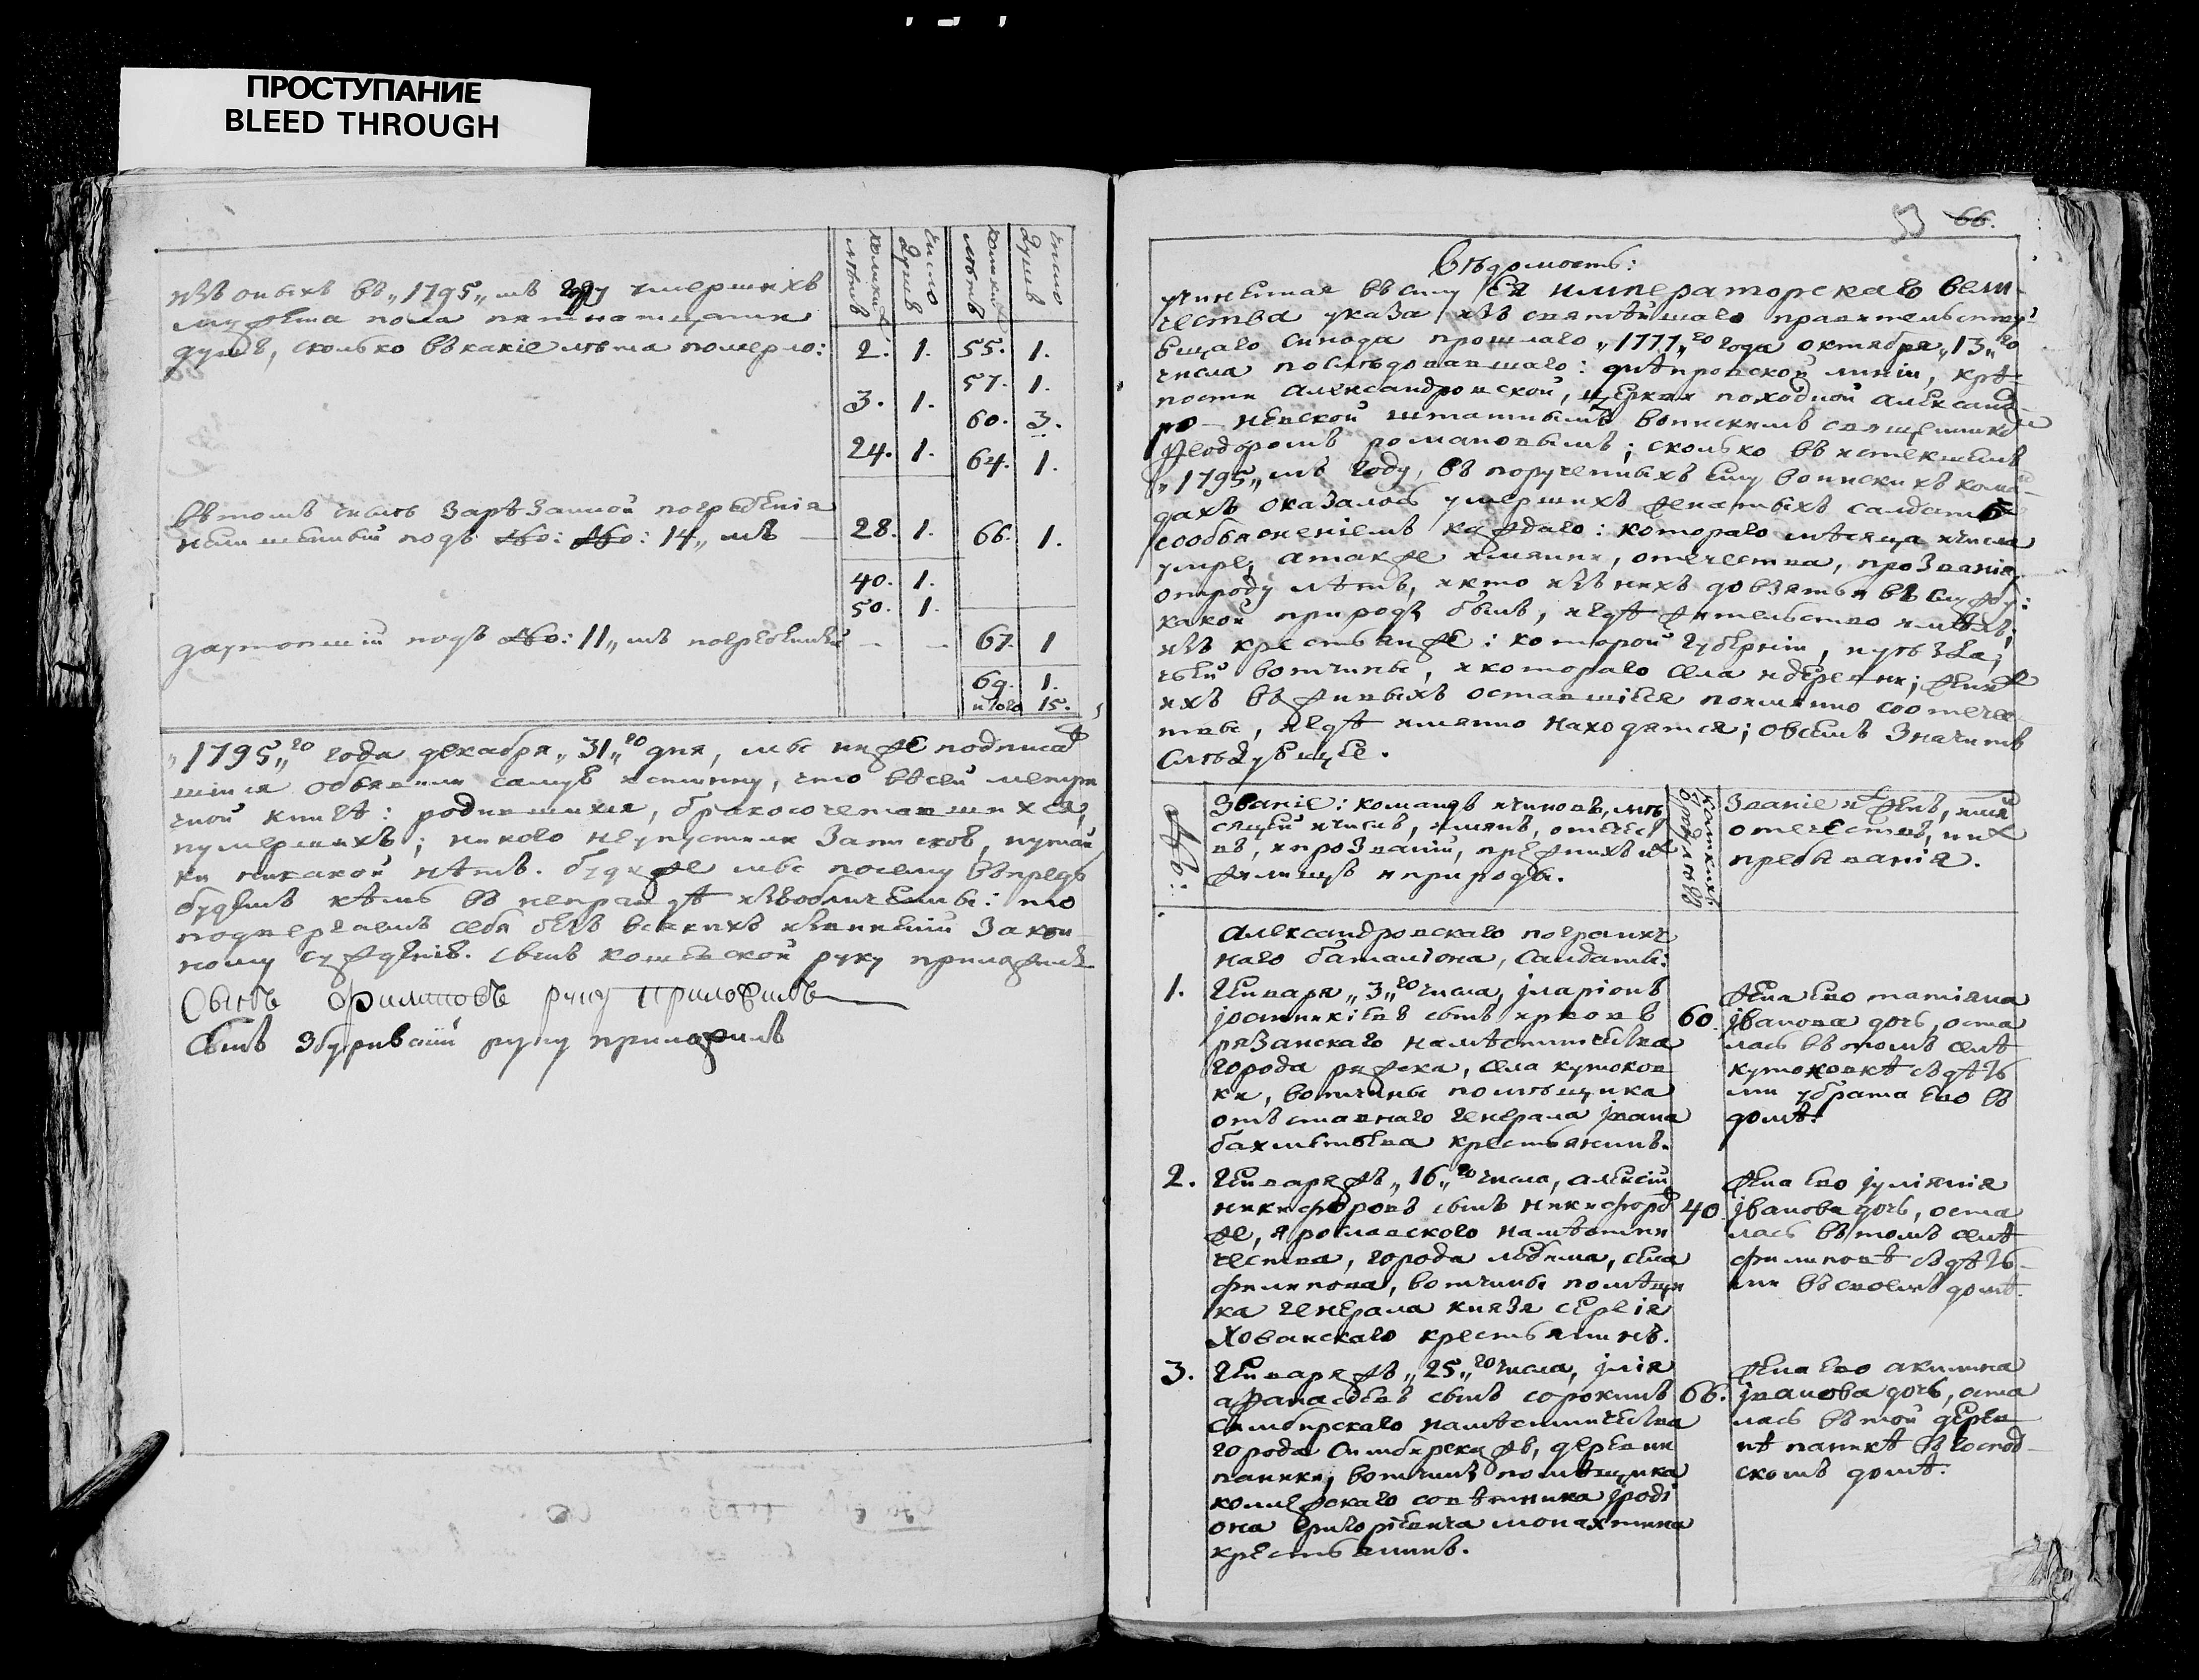 ПРОСТУПАНИЕ
BLEED THROUGH
изъ оныхъ въ „1795„ мъ году умершихъ
мужеска пола пятнатцати
душъ, сколько въ какіе лѣта померло:
въ томъ числѣ зарѣзанной погребенія
подъ №: 14„ мъ
подъ №: 11„ мъ погребенный
коликихъ лѣтъ
число душъ
коликихъ лѣтъ
число душъ
2. 1. 55. 1.
57. 1.
3. 1.
60. 3.
24. 1. 64. 1.
28. 1. 66. 1.
40. 1.
50. 1.
— — 67. 1
69. 1.
итого 15.
„1795„го года декабря „31„го дня, мы ниже подписав
шіися объявили самую истинну, что въ сей метри
чной книгѣ: родившихся, бракосочетавшихся,
и умершихъ; никого не упустили записков, и утай
ки никакой нѣтъ. буде же мы посему впредь
будемъ кѣмъ въ неправдѣ изъобличены: то
подвергаемъ себя безъ всякихъ извиненій закон
ному сужденію. сынъ руку приложилъ
Сынъ Филиповъ руку приложилъ
сынъ руку приложилъ
53 66.
Вѣдомость:
учиненная въ силу Ея императорскаго вели-
чества указа изъ святѣйшаго правительству
ющаго синода прошлаго „1777„го года октября „13„го
числа послѣдовавшаго: днѣпровской линіи, крѣ
пости александровской, церкви походной александ
ро-невской штатнымъ воинскимъ священникомъ
Ѳеодоромъ романовымъ; сколько въ истекшемъ
„1795„ мъ году, въ порученныхъ ему воинскихъ коман
дахъ оказалось умершихъ женатыхъ салдатъ
сообъясненіемъ каждаго: котораго мѣсяца ичисла
умре, атакже имянни, отечества, прозванія
отроду лѣтъ, икто изъ нихъ до взятья въ службу:
какой природы былъ, игдѣ жительство имѣлъ;
изъ крестьянже: которой губерніи, иуѣзда,
чьей вотчины, икотораго села идеревни; жены
ихъ въ живыхъ оставшіеся поимянно соотече
твы, игдѣ имянно находятся; овсемъ значитъ
слѣдующее.
Званіе: командъ ичиновъ, мѣ
сяцей ичислъ, имянъ, отечес
въ, ипрозваній, прежнихъ и
жилищъ иприроды.
коликихъ отроду лѣтъ
Званіе ихъ женъ, имя
отечествъ, ихъ
пребыванія.
александровскаго погранич
наго баталіона, салдаты:
1. Генваря „3„го числа, іларіонъ
іоанникіевъ сынъ
рязанскаго намѣстничества
города ряжска, села кутоков
ки, вотчины помѣщика
отъставнаго генерала івана
бахметьева крестьянинъ.
60.
жена ево татіяна
іванова дочь, оста
лась въ томъ селѣ
кутоковкѣ съ дѣть
ми у брата ево въ
домѣ.
2. Генваряжъ „16„го числа, алексій
никифоровъ сынъ никифоров
же, ярославского намѣстни
чества, города любима, села
филипова, вотчины помѣщи
ка генерала князя сергія
Хованскаго крестьянинъ.
40.
жена ево іуліянія
іванова дочь, оста
лась въ томъ селѣ
филиповѣ съ дѣть-
ми въ своемъ домѣ.
3. Генваряжъ „25„го числа, ілія
аѳанасьевъ сынъ сорокинъ
симбирскаго намѣстничества
города симбирскажъ, деревни
паники, вотчины помѣщика
советника іроді
она григорьевича монахтина
крестьянинъ.
66.
жена ево акилина
іванова дочь, оста
лась въ той дерев
нѣ паникѣ въ господ-
скомъ домѣ.